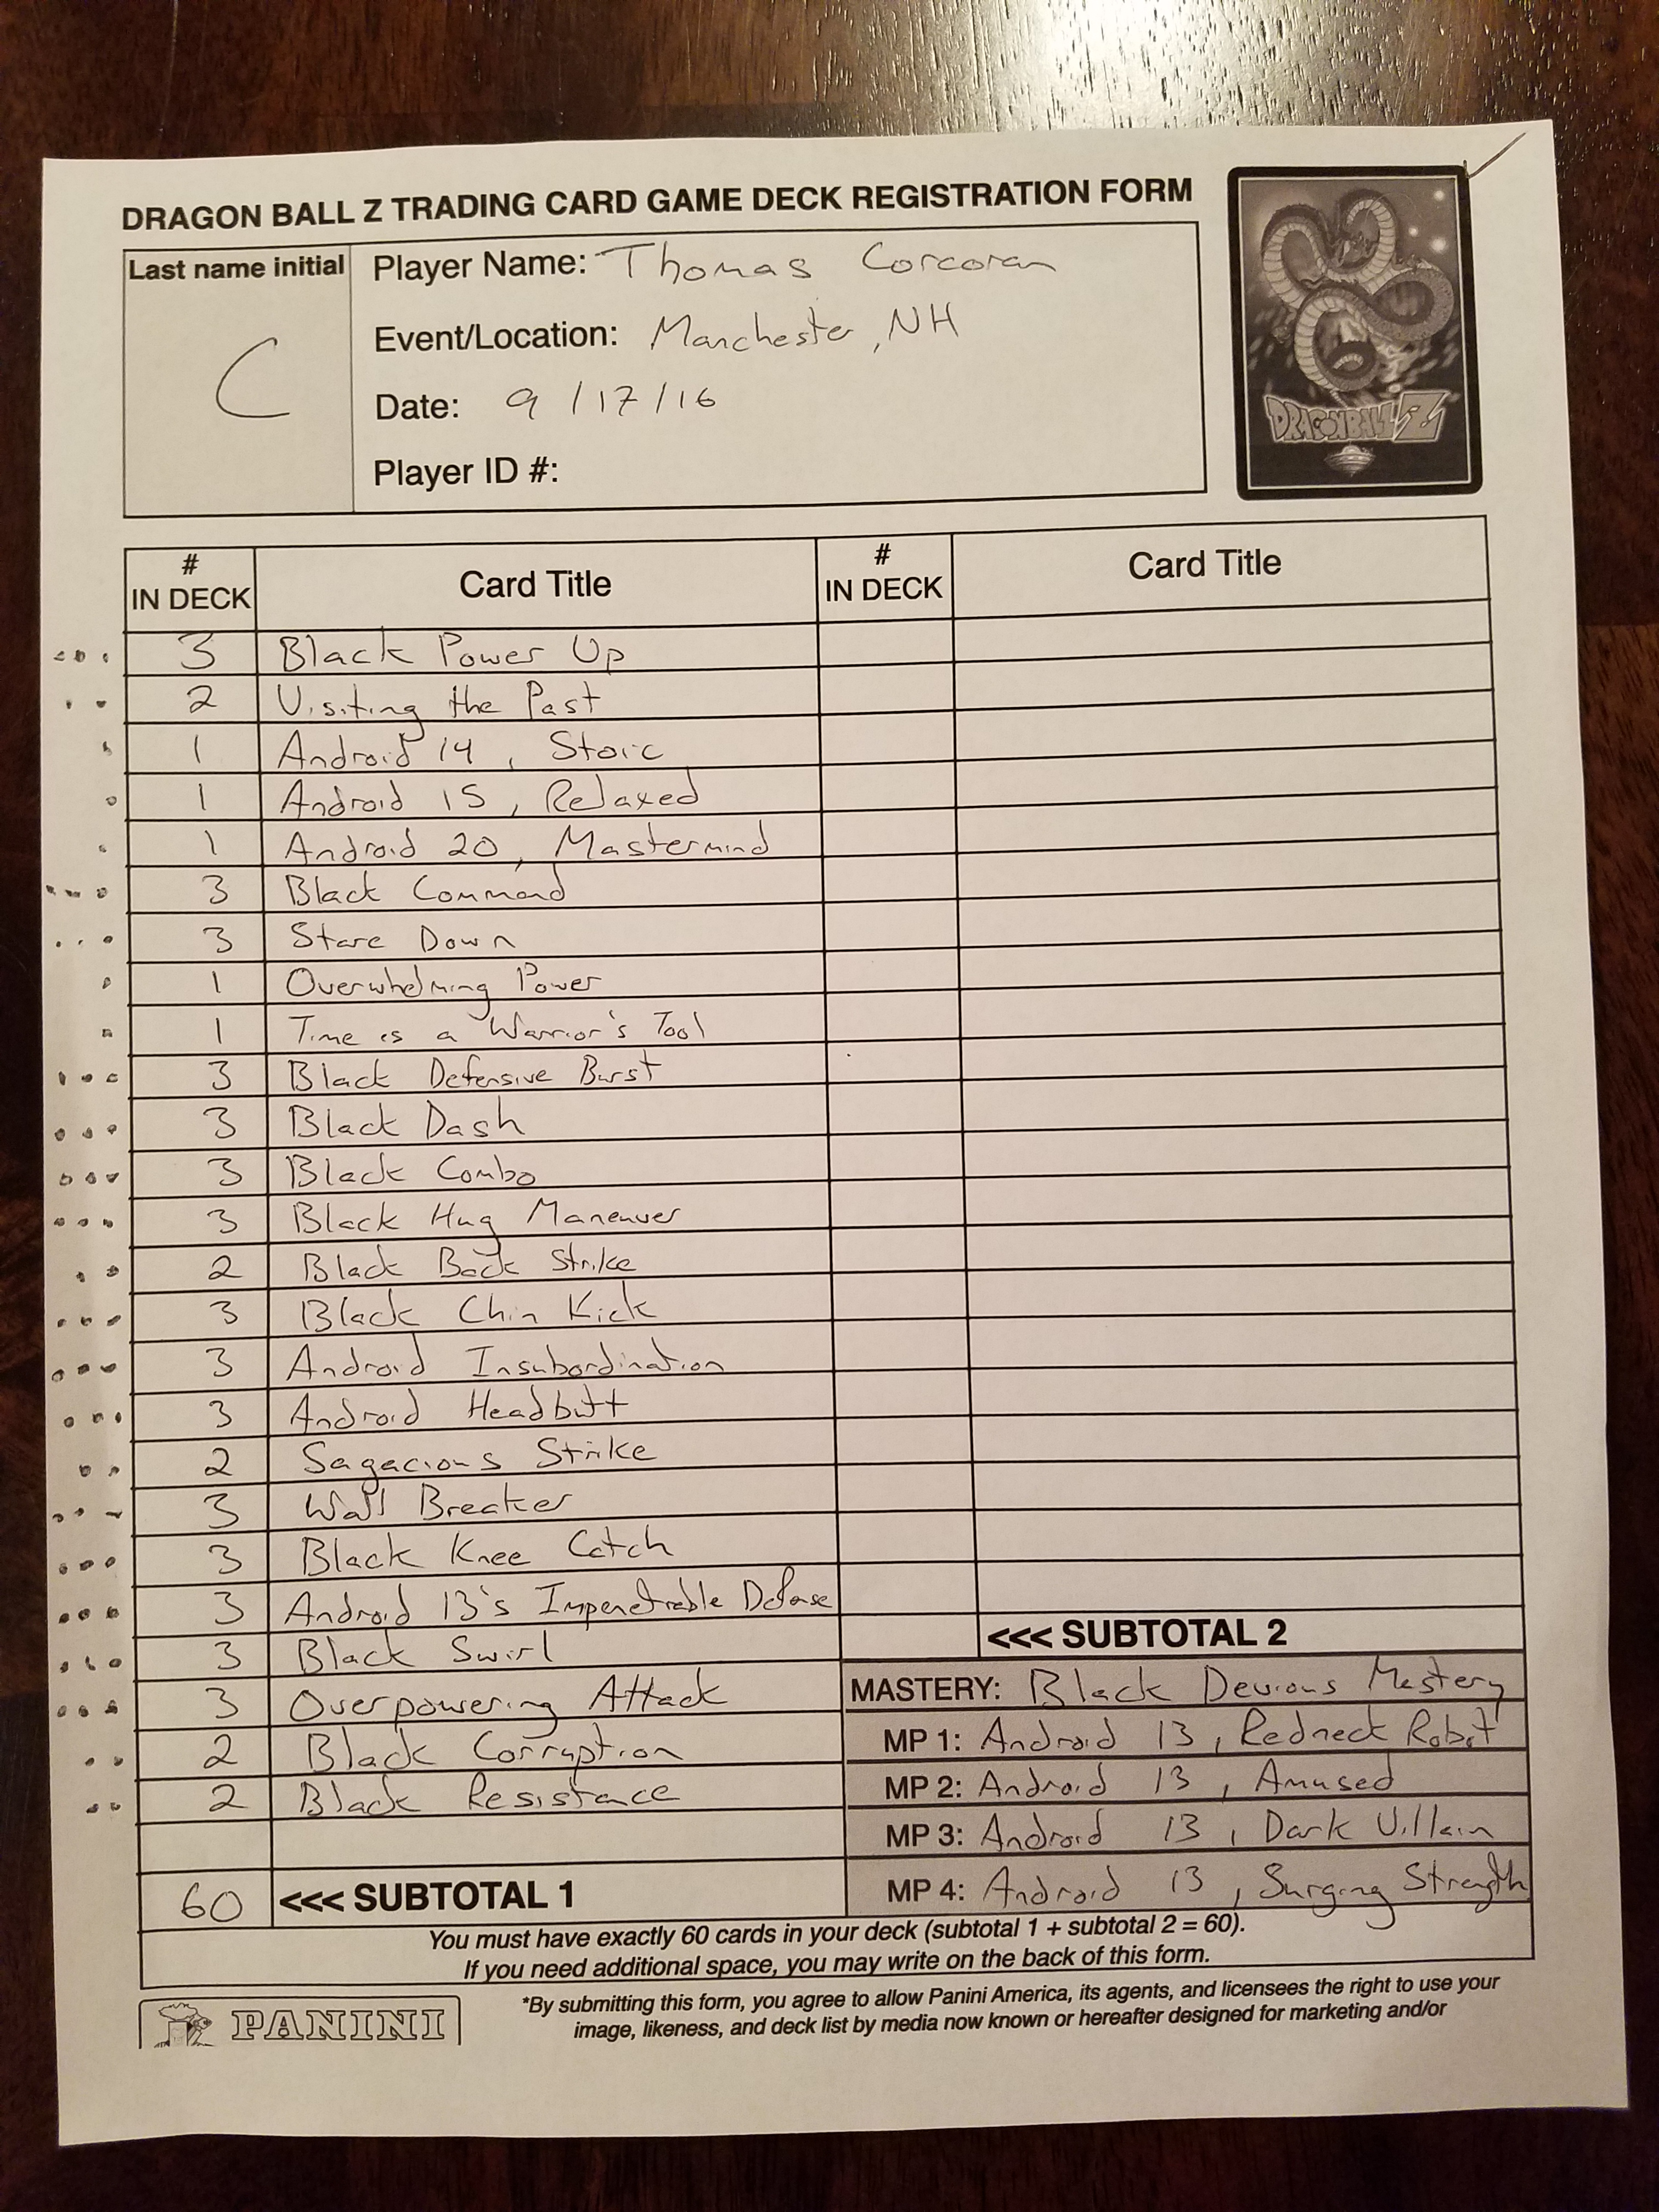 DRAGON BALL Z TRADING CARD GAME DECK REGISTRATION FORM
Last name initial
C
Player Name: Thomas Corcoran
Event/Location: Manchester, NH
Date: 9/17/16
Player ID #:
DRAGONBALL Z
# IN DECK Card Title # IN DECK Card Title
3 Black Power Up
2 Visiting the Past
1 Android 14, Stoic
1 Android 15, Relaxed
1 Android 20, Mastermind
3 Black Command
3 Stare Down
1 Overwhelming Power
1 Time is a Warrior's Tool
3 Black Defensive Burst
3 Black Dash
3 Black Combo
3 Black Hug Maneuver
2 Black Back Strike
3 Black Chin Kick
3 Android Insubordination
3 Android Headbutt
2 Sagacious Strike
3 Wall Breaker
3 Black Knee Catch
3 Android 13's Impenetrable Defense
3 Black Swirl
3 Overpowering Attack
2 Black Corruption
2 Black Resistance
60 <<< SUBTOTAL 1
<<< SUBTOTAL 2
MASTERY: Black Devious Mastery
MP 1: Android 13, Redneck Robot
MP 2: Android 13, Amused
MP 3: Android 13, Dark Villain
MP 4: Android 13, Surging Strength
You must have exactly 60 cards in your deck (subtotal 1 + subtotal 2 = 60).
If you need additional space, you may write on the back of this form.
PANINI
*By submitting this form, you agree to allow Panini America, its agents, and licensees the right to use your
image, likeness, and deck list by media now known or hereafter designed for marketing and/or